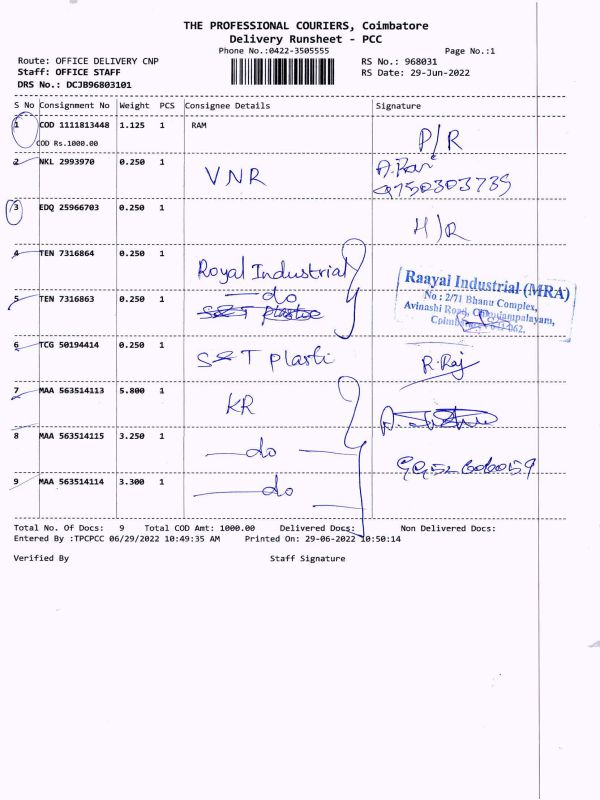 THE PROFESSIONAL COURIERS, Coimbatore
Delivery Runsheet - PCC
Phone No.:0422-3505555
Page No.:1
Route: OFFICE DELIVERY CNP
RS No.: 968031
Staff: OFFICE STAFF
RS Date: 29-Jun-2022
DRS No.: DCJB96803101
S No Consignment No Weight PCS Consignee Details Signature
1 COD 1111813448 1.125 1 RAM P/R
COD Rs.1000.00
2 NKL 2993970 0.250 1 VNR
9750303735
3 EDQ 25966703 0.250 1 H/R
4 TEN 7316864 0.250 1 Royal Industrial
Raayal Industrial (MRA)
No : 2/71 Bhanu Complex,
Avinashi Road,
5 TEN 7316863 0.250 1 do
6 TCG 50194414 0.250 1 S&T plasti R.Raj
7 MAA 563514113 5.800 1 KR
8 MAA 563514115 3.250 1 do
9 MAA 563514114 3.300 1 do
Total No. Of Docs: 9 Total COD Amt: 1000.00 Delivered Docs: Non Delivered Docs:
Entered By :TPCPCC 06/29/2022 10:49:35 AM Printed On: 29-06-2022 10:50:14
Verified By Staff Signature